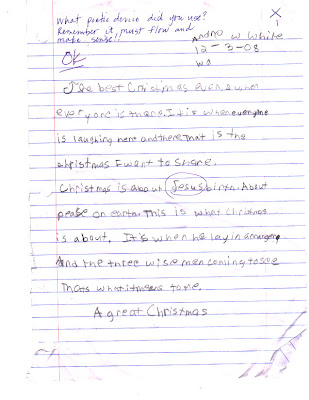 What poetic device did you use?
Remember it must flow and
make sense!!
X
1
OK
Andre W White
12-3-08
wo
The best Christmas ever, is when
everyone is there. It is when everyone
is laughing here and there that is the
christmas I want to share.
Christmas is about Jesus birth. About
peace on earth. This is what Christmas
is about. It's when he lay in a
And the three wise men coming to see
Thats what it means to me.
A great Christmas